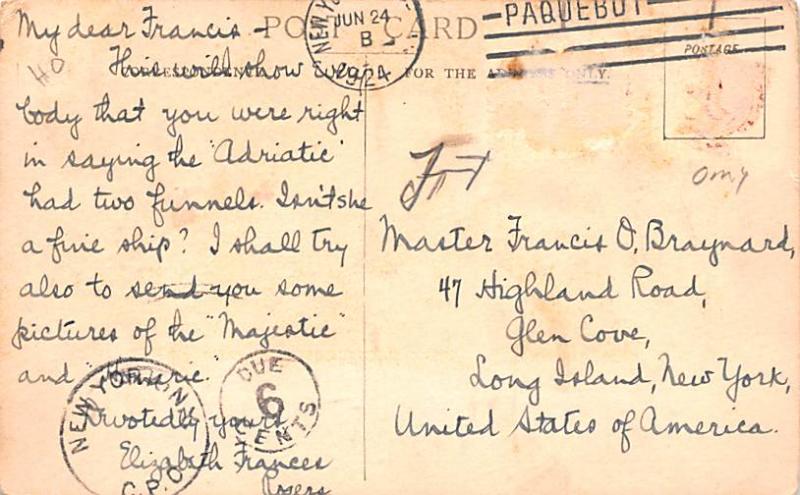 My dear Francis -
POST CARD
NEW YO
JUN 24
B
1924
PAQUEBOT
POSTAGE
This will show every
FOR THE ADDRESS ONLY.
body that you were right
in saying the "Adriatic"
had two funnels. Isn't she
a fine ship? I shall try
also to send you some
pictures of the "Majestic"
and "Homeric."
Devotedly yours
Elizabeth Frances
Rogers
Master Francis O. Braynard,
47 Highland Road,
Glen Cove,
Long Island, New York,
United States of America.
NEW YORK, N.Y.
G.P.O.
DUE
6
CENTS